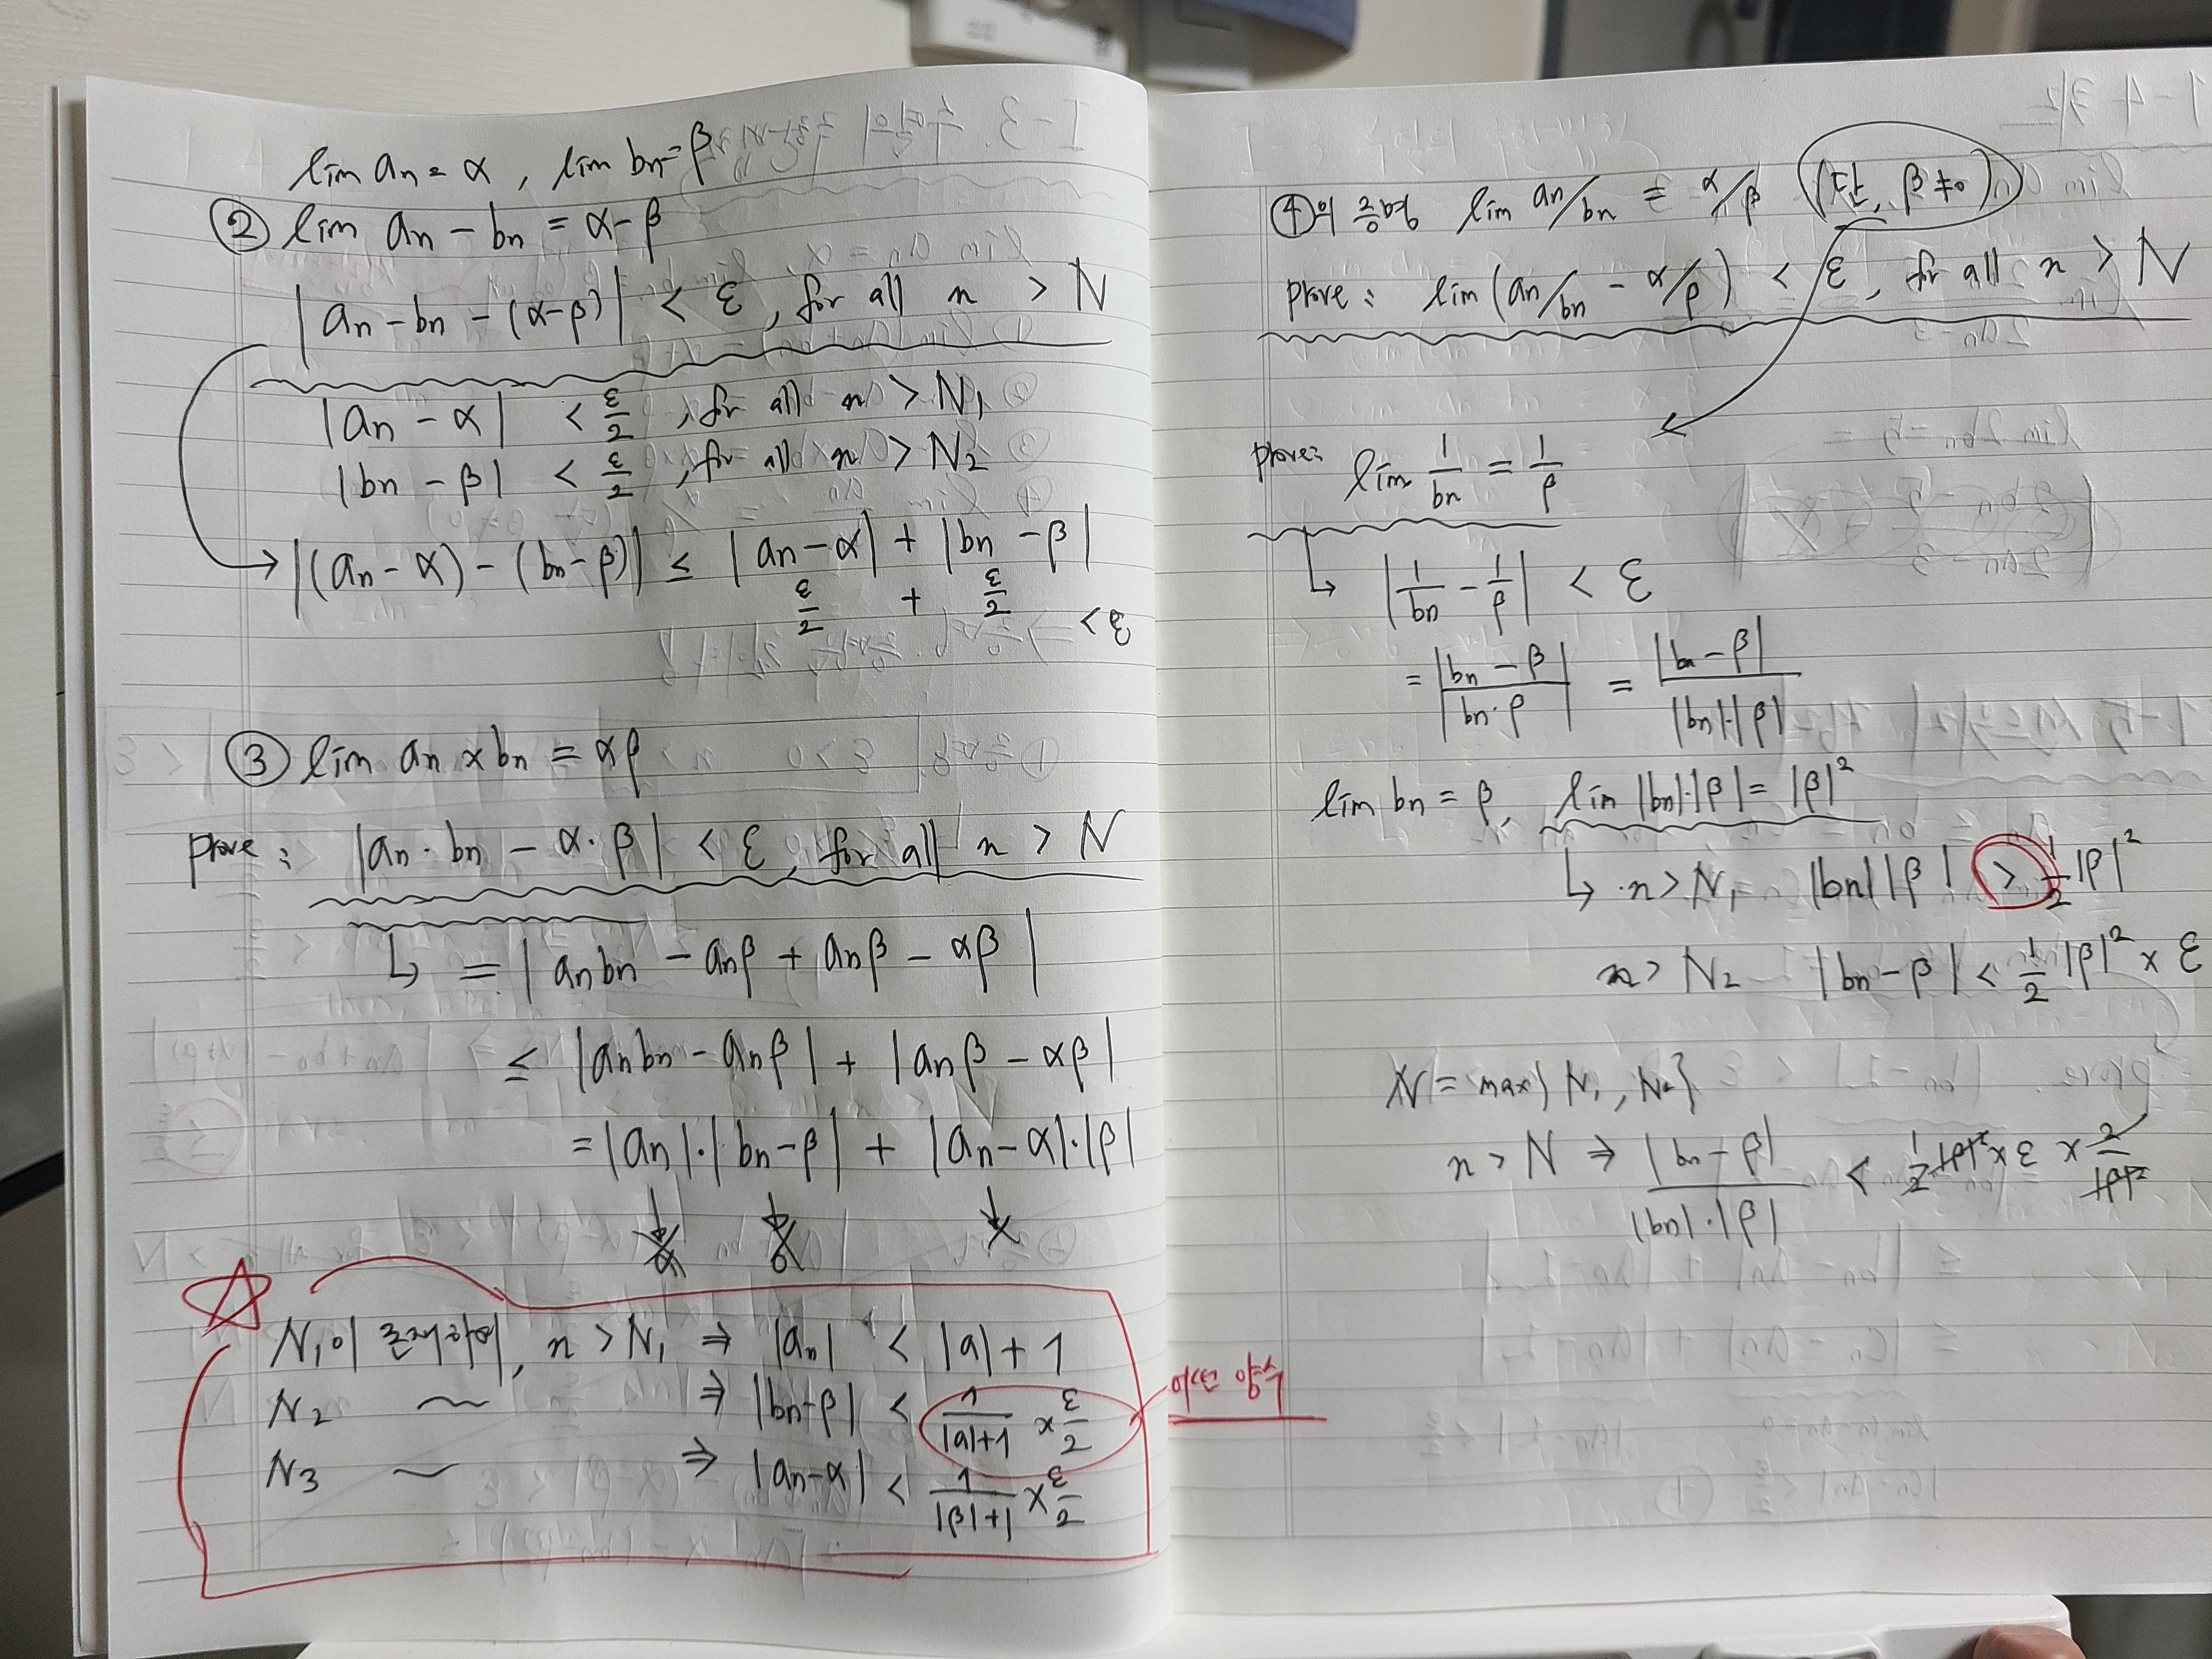 lim an = α , lim bn = β
② lim an - bn = α-β
|an - bn - (α-β)| < ε , for all n > N
|an - α| < ε/2 , for all n > N1
|bn - β| < ε/2 , for all n > N2
→ |(an - α) - (bn - β)| ≤ |an - α| + |bn - β|
ε/2 + ε/2
< ε
③ lim an × bn = αβ
prove : |an · bn - α · β| < ε , for all n > N
↳ = |anbn - anβ + anβ - αβ|
≤ |anbn - anβ| + |anβ - αβ|
= |an| · |bn - β| + |an - α| · |β|
☆
N1이 존재하여, n > N1 ⇒ |an| < |a| + 1
N2 ~ ⇒ |bn-β| < 1/(|a|+1) × ε/2
어떤 양수
N3 ~ ⇒ |an-α| < 1/(|β|+1) × ε/2
④의 증명 lim an/bn = α/β (단, β≠0)
prove : lim (an/bn - α/β) < ε , for all n > N
prove: lim 1/bn = 1/β
↳ |1/bn - 1/β| < ε
= |(bn - β)/(bn · β)| = |bn - β|/(|bn| · |β|)
lim bn = β, lim |bn|·|β| = |β|²
↳ n > N1 |bn||β| > 1/2 |β|²
n > N2 |bn - β| < 1/2 |β|² × ε
N = max{N1, N2}
n > N ⇒ |bn - β|/(|bn| · |β|) < 1/2 |β|² × ε × 2/|β|²